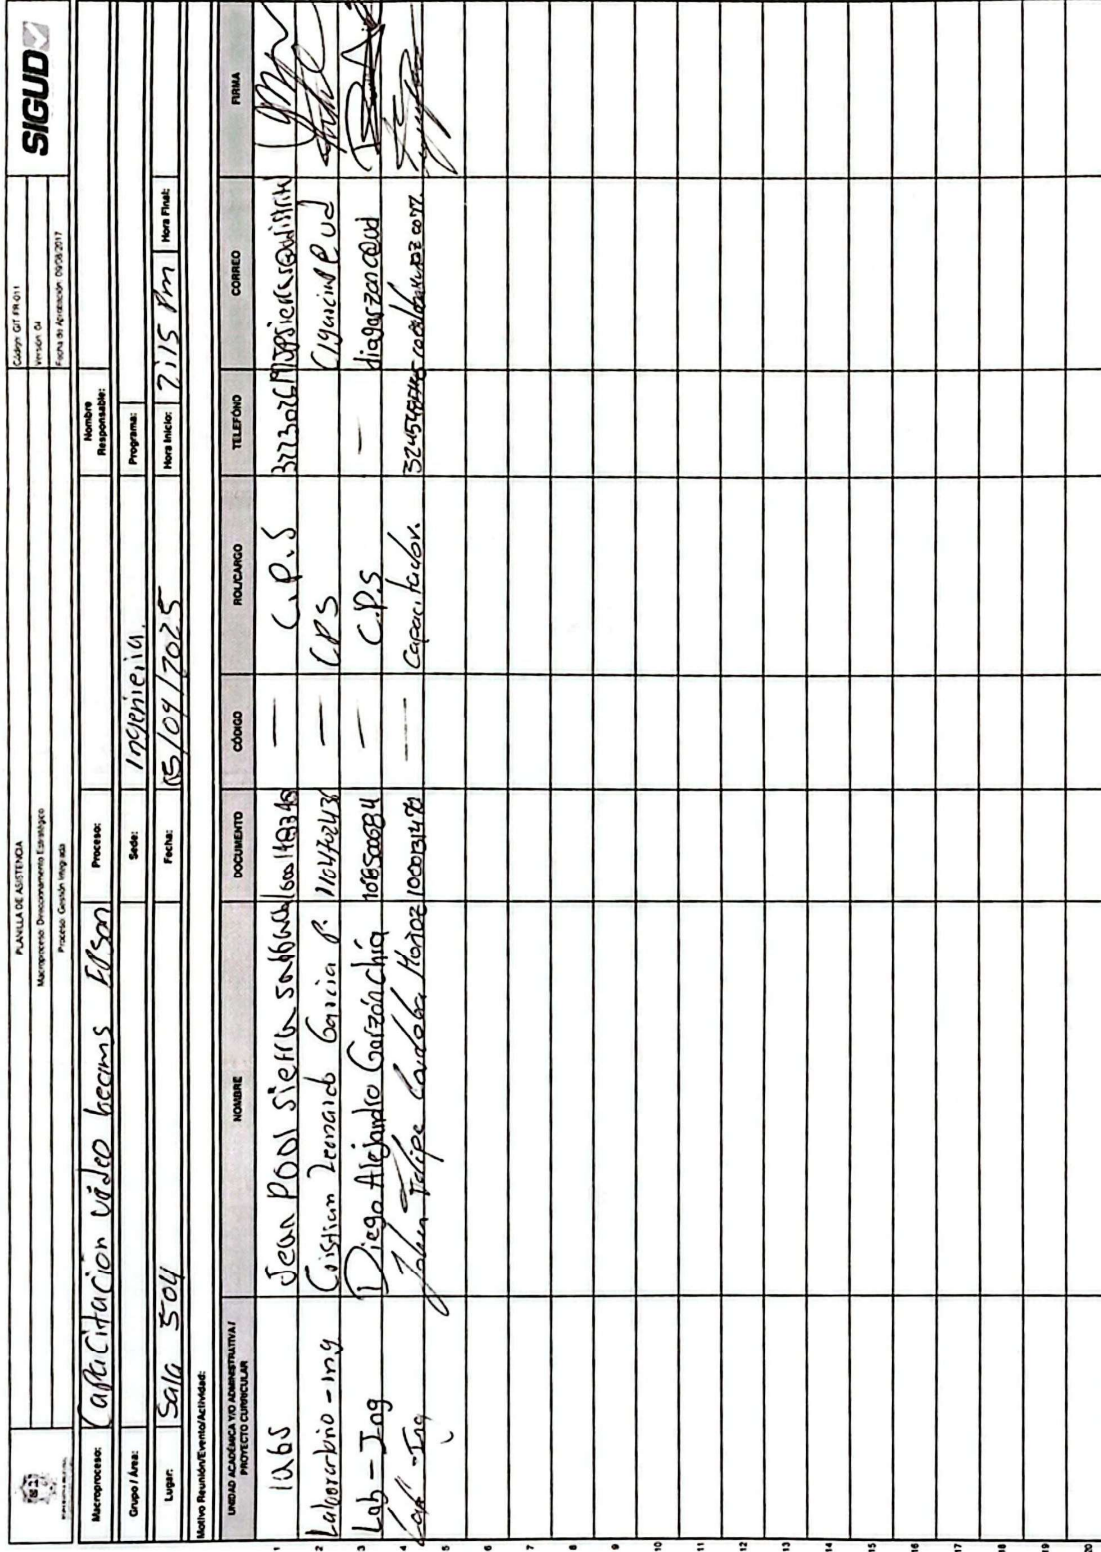 PLANILLA DE ASISTENCIA
Macroproceso: Direccionamiento Estratégico
Proceso: Gestión Integrada
Código: GIT-FR-011
Versión: 04
Fecha de Aprobación: 09/08/2017
SIGUD
Macroproceso: Capacitacion video beams Epson Proceso: Nombre Responsable:
Grupo / Área: Sede: Ingenieria. Programa:
Lugar: Sala 504 Fecha: 05/09/2025 Hora Inicio: 2:15 Pm Hora Final:
Motivo Reunión/Evento/Actividad:
UNIDAD ACADÉMICA Y/O ADMINISTRATIVA / PROYECTO CURRICULAR NOMBRE DOCUMENTO CÓDIGO ROL/CARGO TELEFÓNO CORREO FIRMA
1 labs Jean Pool Sierra — C.P.S
2 Laboratorio - ing Cristian Leonardo Garcia P. — CPS
3 Lab - Ing Diego Alejandro Garzón Chía — C.P.S — diagarzonc@ud
4 Lab - Ing Johan Felipe Cordoba Muñoz 1000131470 — Capacitador.
5
6
7
8
9
10
11
12
13
14
15
16
17
18
19
20